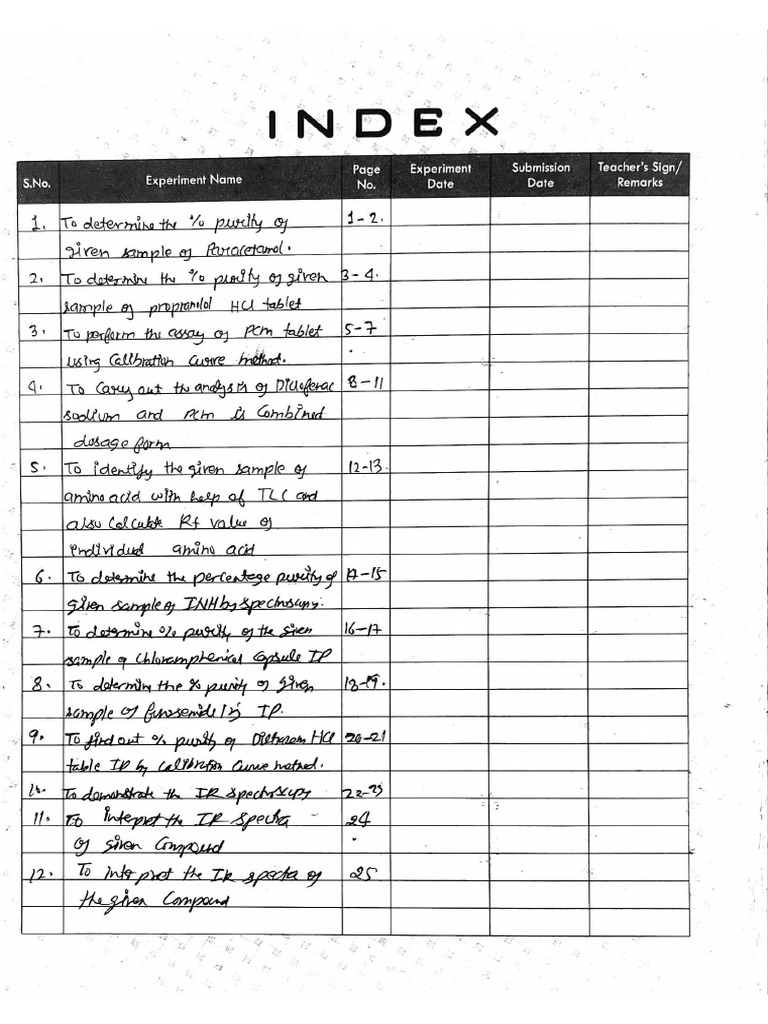 INDEX
S.No. Experiment Name Page No. Experiment Date Submission Date Teacher's Sign/ Remarks
1. To determine the % purity of 1-2.
given sample of Paracetamol.
2. To determine the % purity of given 3-4.
sample of propranolol HCl tablet
3. To perform the assay of PCM tablet 5-7
using Calibration Curve method.
4. To Carry out the analysis of Diclofenac 8-11
sodium and PCM is Combined
dosage form
5. To identify the given sample of 12-13.
amino acid with help of TLC and
also Calculate Rf value of
individual amino acid
6. To determine the percentage purity of 14-15
given sample of INH by spectroscopy.
7. To determine % purity of the given 16-17
sample of Chloramphenicol Capsule IP
8. To determine the % purity of given 18-19.
sample of furosemide IP.
9. To find out % purity of Diltiazem HCl 20-21
table IP by Calibration Curve method.
10. To demonstrate the IR spectroscopy 22-23
11. To interpret the IR spectra 24
of given Compound
12. To interpret the IR spectra of 25
the given Compound